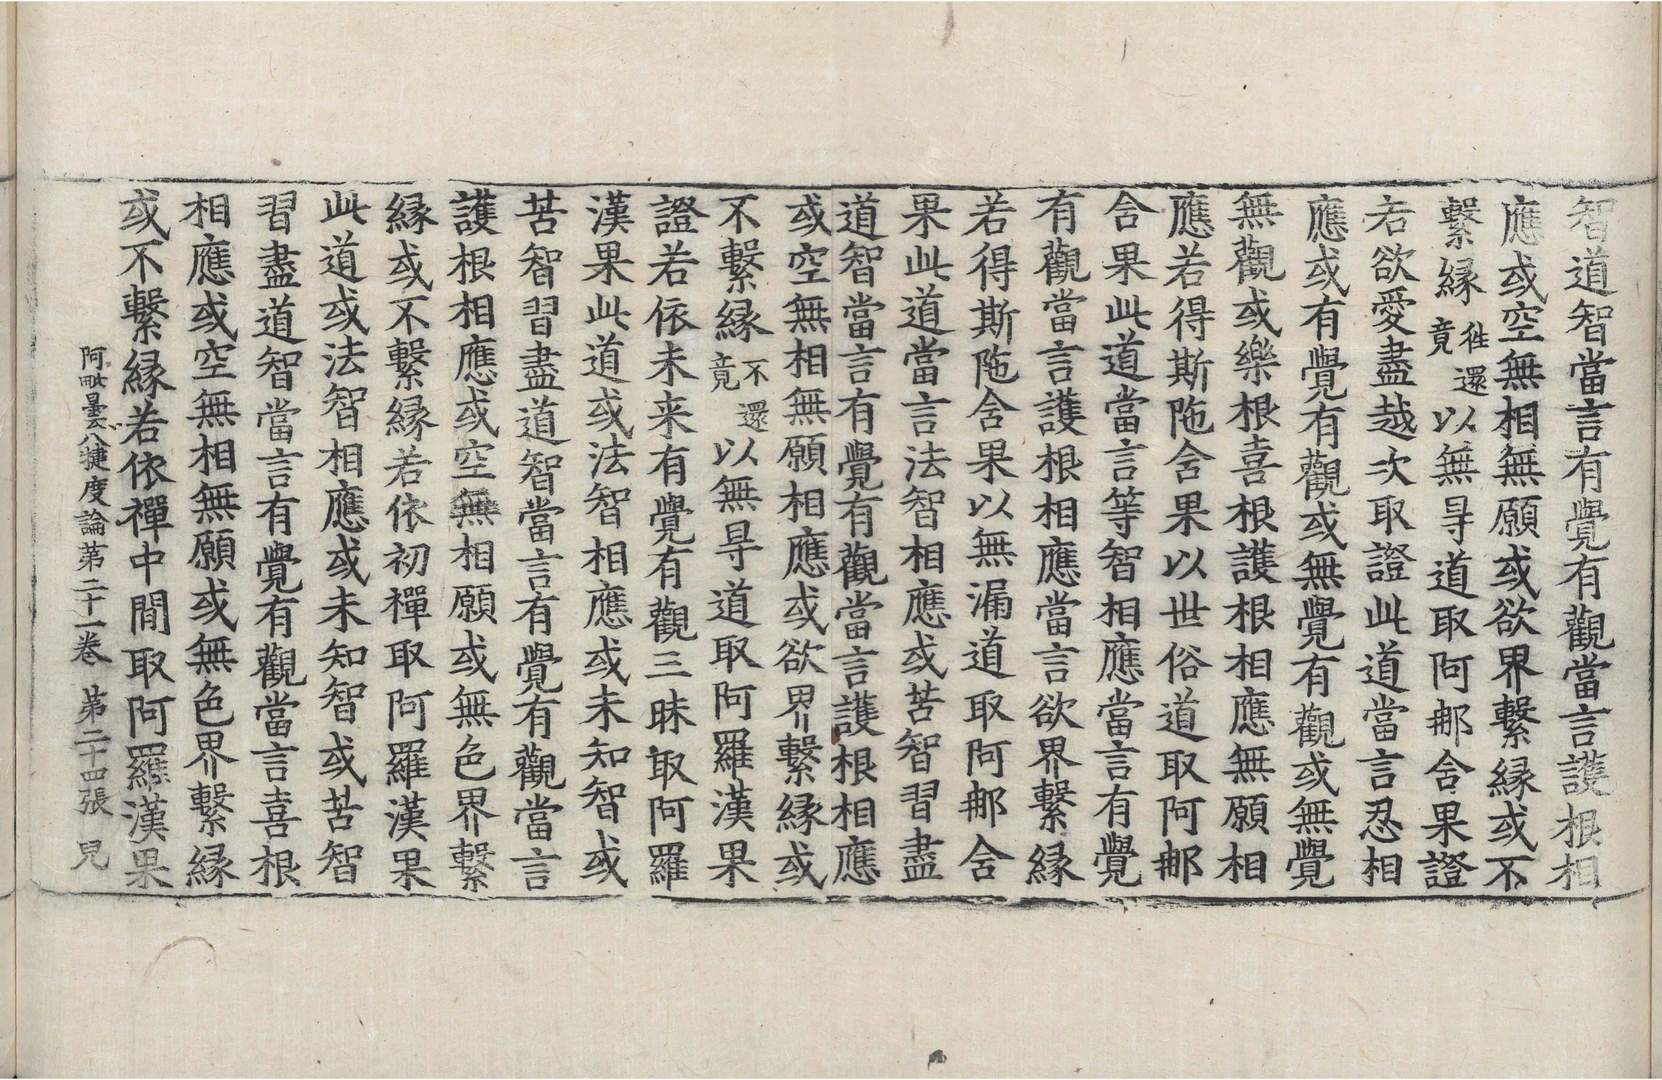 智道智當言有覺有觀當言護根相
應或空無相無願或欲界繫緣或不
繫緣往還竟以無㝵道取阿那含果證
若欲愛盡越次取證此道當言忍相
應或有覺有觀或無覺有觀或無覺
無觀或樂根喜根護根相應無願相
應若得斯陁含果以世俗道取阿那
含果此道當言等智相應當言有覺
有觀當言護根相應當言欲界繫緣
若得斯陁含果以無漏道取阿那含
果此道當言法智相應或苦智習盡
道智當言有覺有觀當言護根相應
或空無相無願相應或欲界繫緣或
不繫緣不還竟以無㝵道取阿羅漢果
證若依未来有覺有觀三昧取阿羅
漢果此道或法智相應或未知智或
苦智習盡道智當言有覺有觀當言
護根相應或空無相願或無色界繫
緣或不繫緣若依初禪取阿羅漢果
此道或法智相應或未知智或苦智
習盡道智當言有覺有觀當言喜根
相應或空無相無願或無色界繫緣
或不繫緣若依禪中間取阿羅漢果
阿毗曇八犍度論第二十一卷 第二十四張 皃